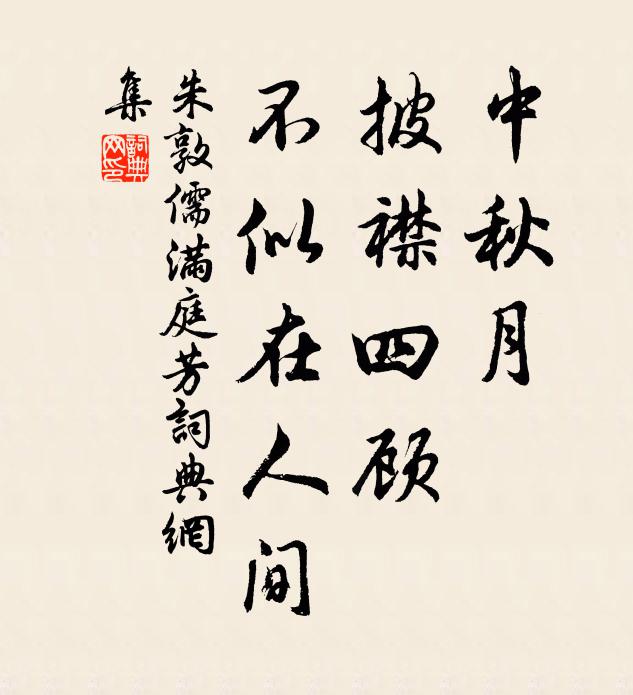 中秋月
披襟四顾
不似在人间
朱敦儒满庭芳詞典網
集
詞典
网印